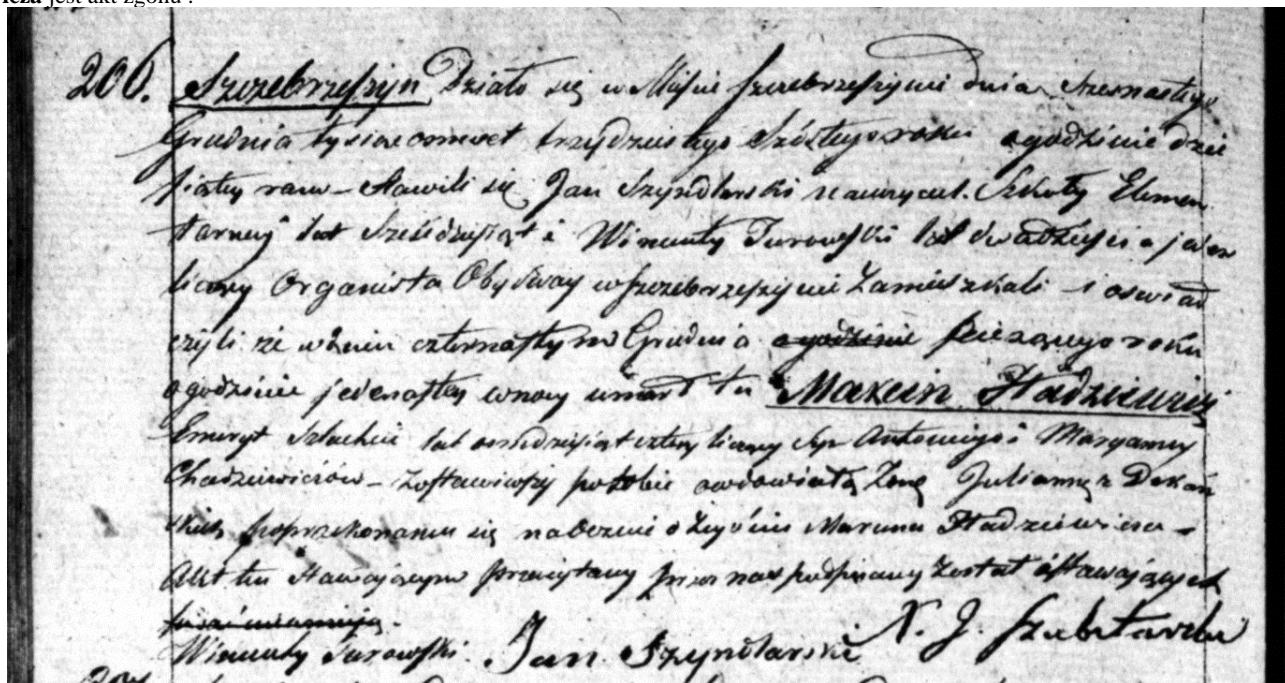 jest akt zgonu :
206. Szczebrzeszyn Działo się w Mieście Szczebrzeszynie dnia Szesnastego
Grudnia tysiąc ośmset trzydziestego Szóstego roku o godzinie dzie
siątey rano – Stawili się Jan Szyndlarski nauczyciel Szkoły Elemen
tarney lat Sześćdziesiąt i Wincenty Turowski lat dwadzieścia jeden
liczący Organista Obydway w Szczebrzeszynie Zamieszkali – i oświad
czyli że w dniu czternastym Grudnia o godzinie bieżącego roku
o godzinie jedenastey w nocy umarł tu Marcin Hadziewicz
Emeryt Szlachcic lat ośmdziesiąt cztery liczący Syn Antoniego i Maryanny
Chadziewiczów – Zostawiwszy po sobie owdowiałą Żonę Juliannę z
po przekonaniu się naocznie o Zeyściu Marcina Hadziewicza –
Akt ten Stawającym przeczytany przez nas podpisany Został i Stawających
Wincenty Turowski. Jan Szyndlarski X. J.